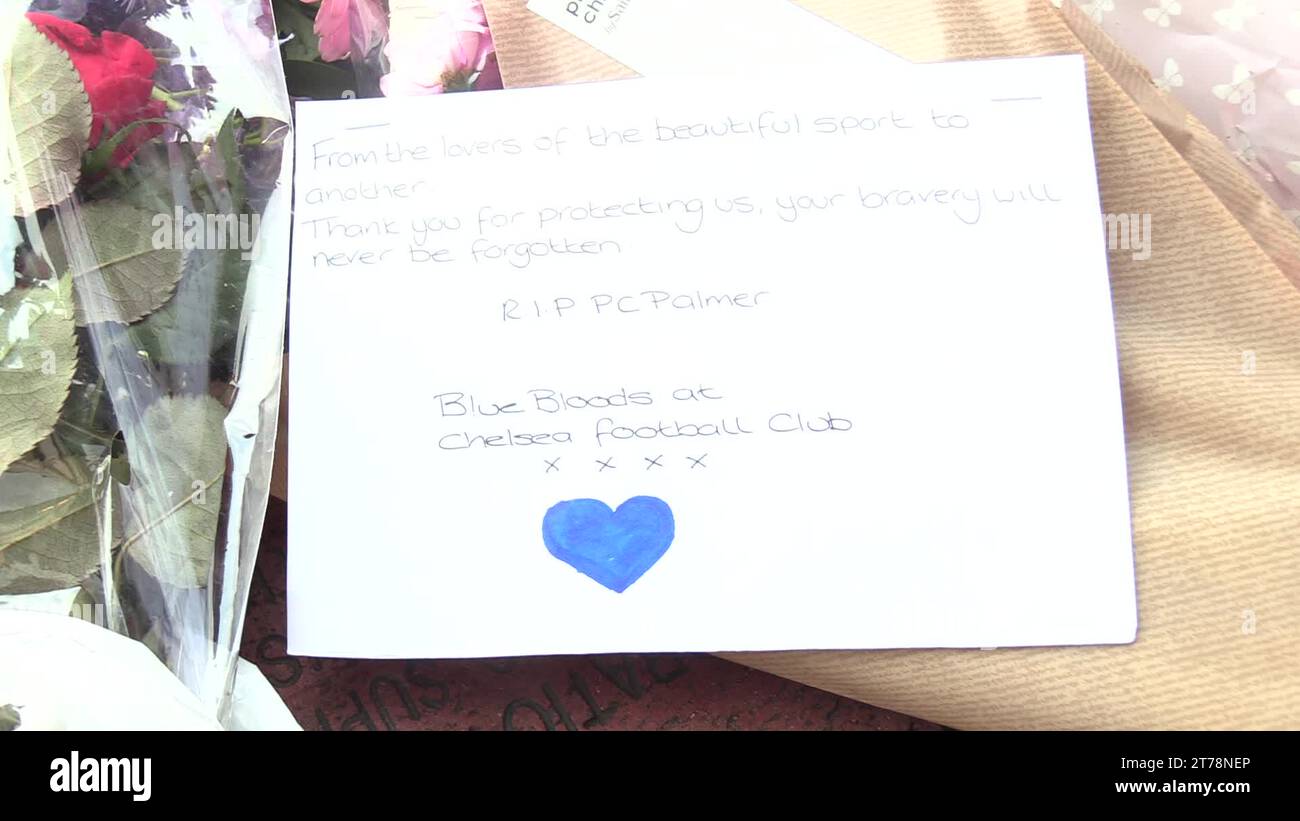 From the lovers of the beautiful sport to
another.
Thank you for protecting us, your bravery will
never be forgotten
R.I.P PC Palmer
Blue Bloods at
Chelsea Football Club
x x x x
alamy
Image ID: 2T78NEP
www.alamy.com